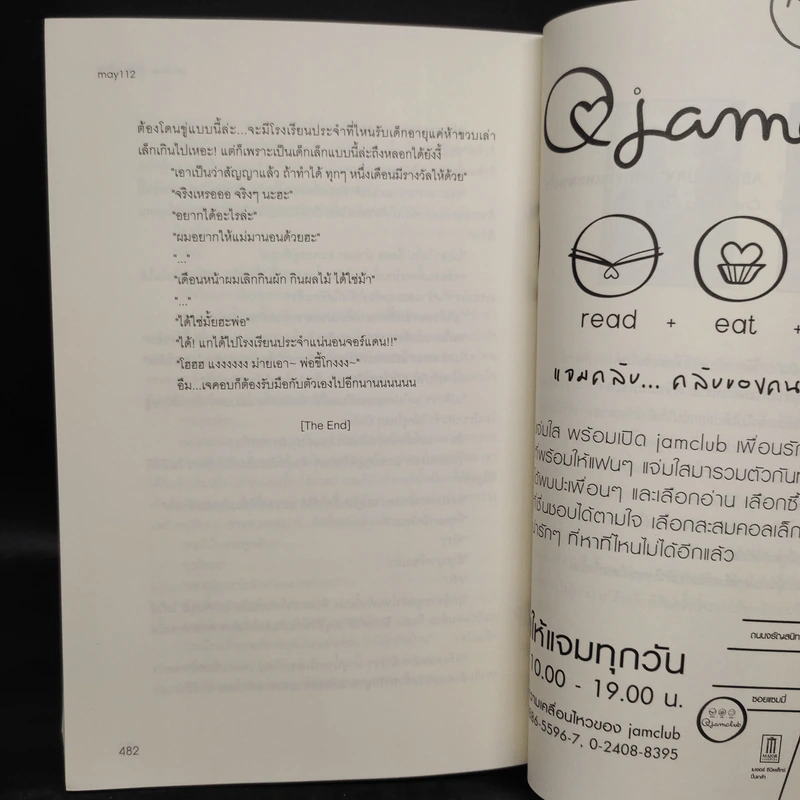 may112
ต้องโดนขู่แบบนี้ล่ะ...จะมีโรงเรียนประจำที่ไหนรับเด็กอายุแค่ห้าขวบเล่า
เล็กเกินไปเหอะ! แต่ก็เพราะเป็นเด็กเล็กแบบนี้ล่ะถึงหลอกได้ยังงี้
"เอาเป็นว่าสัญญาแล้ว ถ้าทำได้ ทุกๆ หนึ่งเดือนมีรางวัลให้ด้วย"
"จริงเหรอออ จริงๆ นะฮะ"
"อยากได้อะไรล่ะ"
"ผมอยากให้แม่มานอนด้วยฮะ"
"..."
"เดือนหน้าผมเลิกกินผัก กินผลไม้ ได้ใช่ม้า"
"..."
"ได้ใช่มั้ยฮะพ่อ"
"ได้! แกได้ไปโรงเรียนประจำแน่นอนจอร์แดน!!"
"โฮฮฮ แงงงงงง ม่ายเอา~ พ่อขี้โกงงง~"
อืม...เจคอบก็ต้องรับมือกับตัวเองไปอีกนานนนนนน
[The End]
482
jam
read + eat +
แจมคลับ... คลับของคน
แจ่มใส พร้อมเปิด jamclub เพื่อนรัก
ที่พร้อมให้แฟนๆ แจ่มใสมารวมตัวกัน
ได้พบปะเพื่อนๆ และเลือกอ่าน เลือกซื้
ที่ชื่นชอบได้ตามใจ เลือกสะสมคอลเล็ก
น่ารักๆ ที่หาที่ไหนไม่ได้อีกแล้ว
ให้แจมทุกวัน
10.00 - 19.00 น.
ความเคลื่อนไหวของ jamclub
86-5596-7, 0-2408-8395
ถนนจรัญสนิท
ซอยแซมมี่
jamclub
MAJOR
เมเจอร์ ซีนีเพล็กซ์
ปิ่นเกล้า